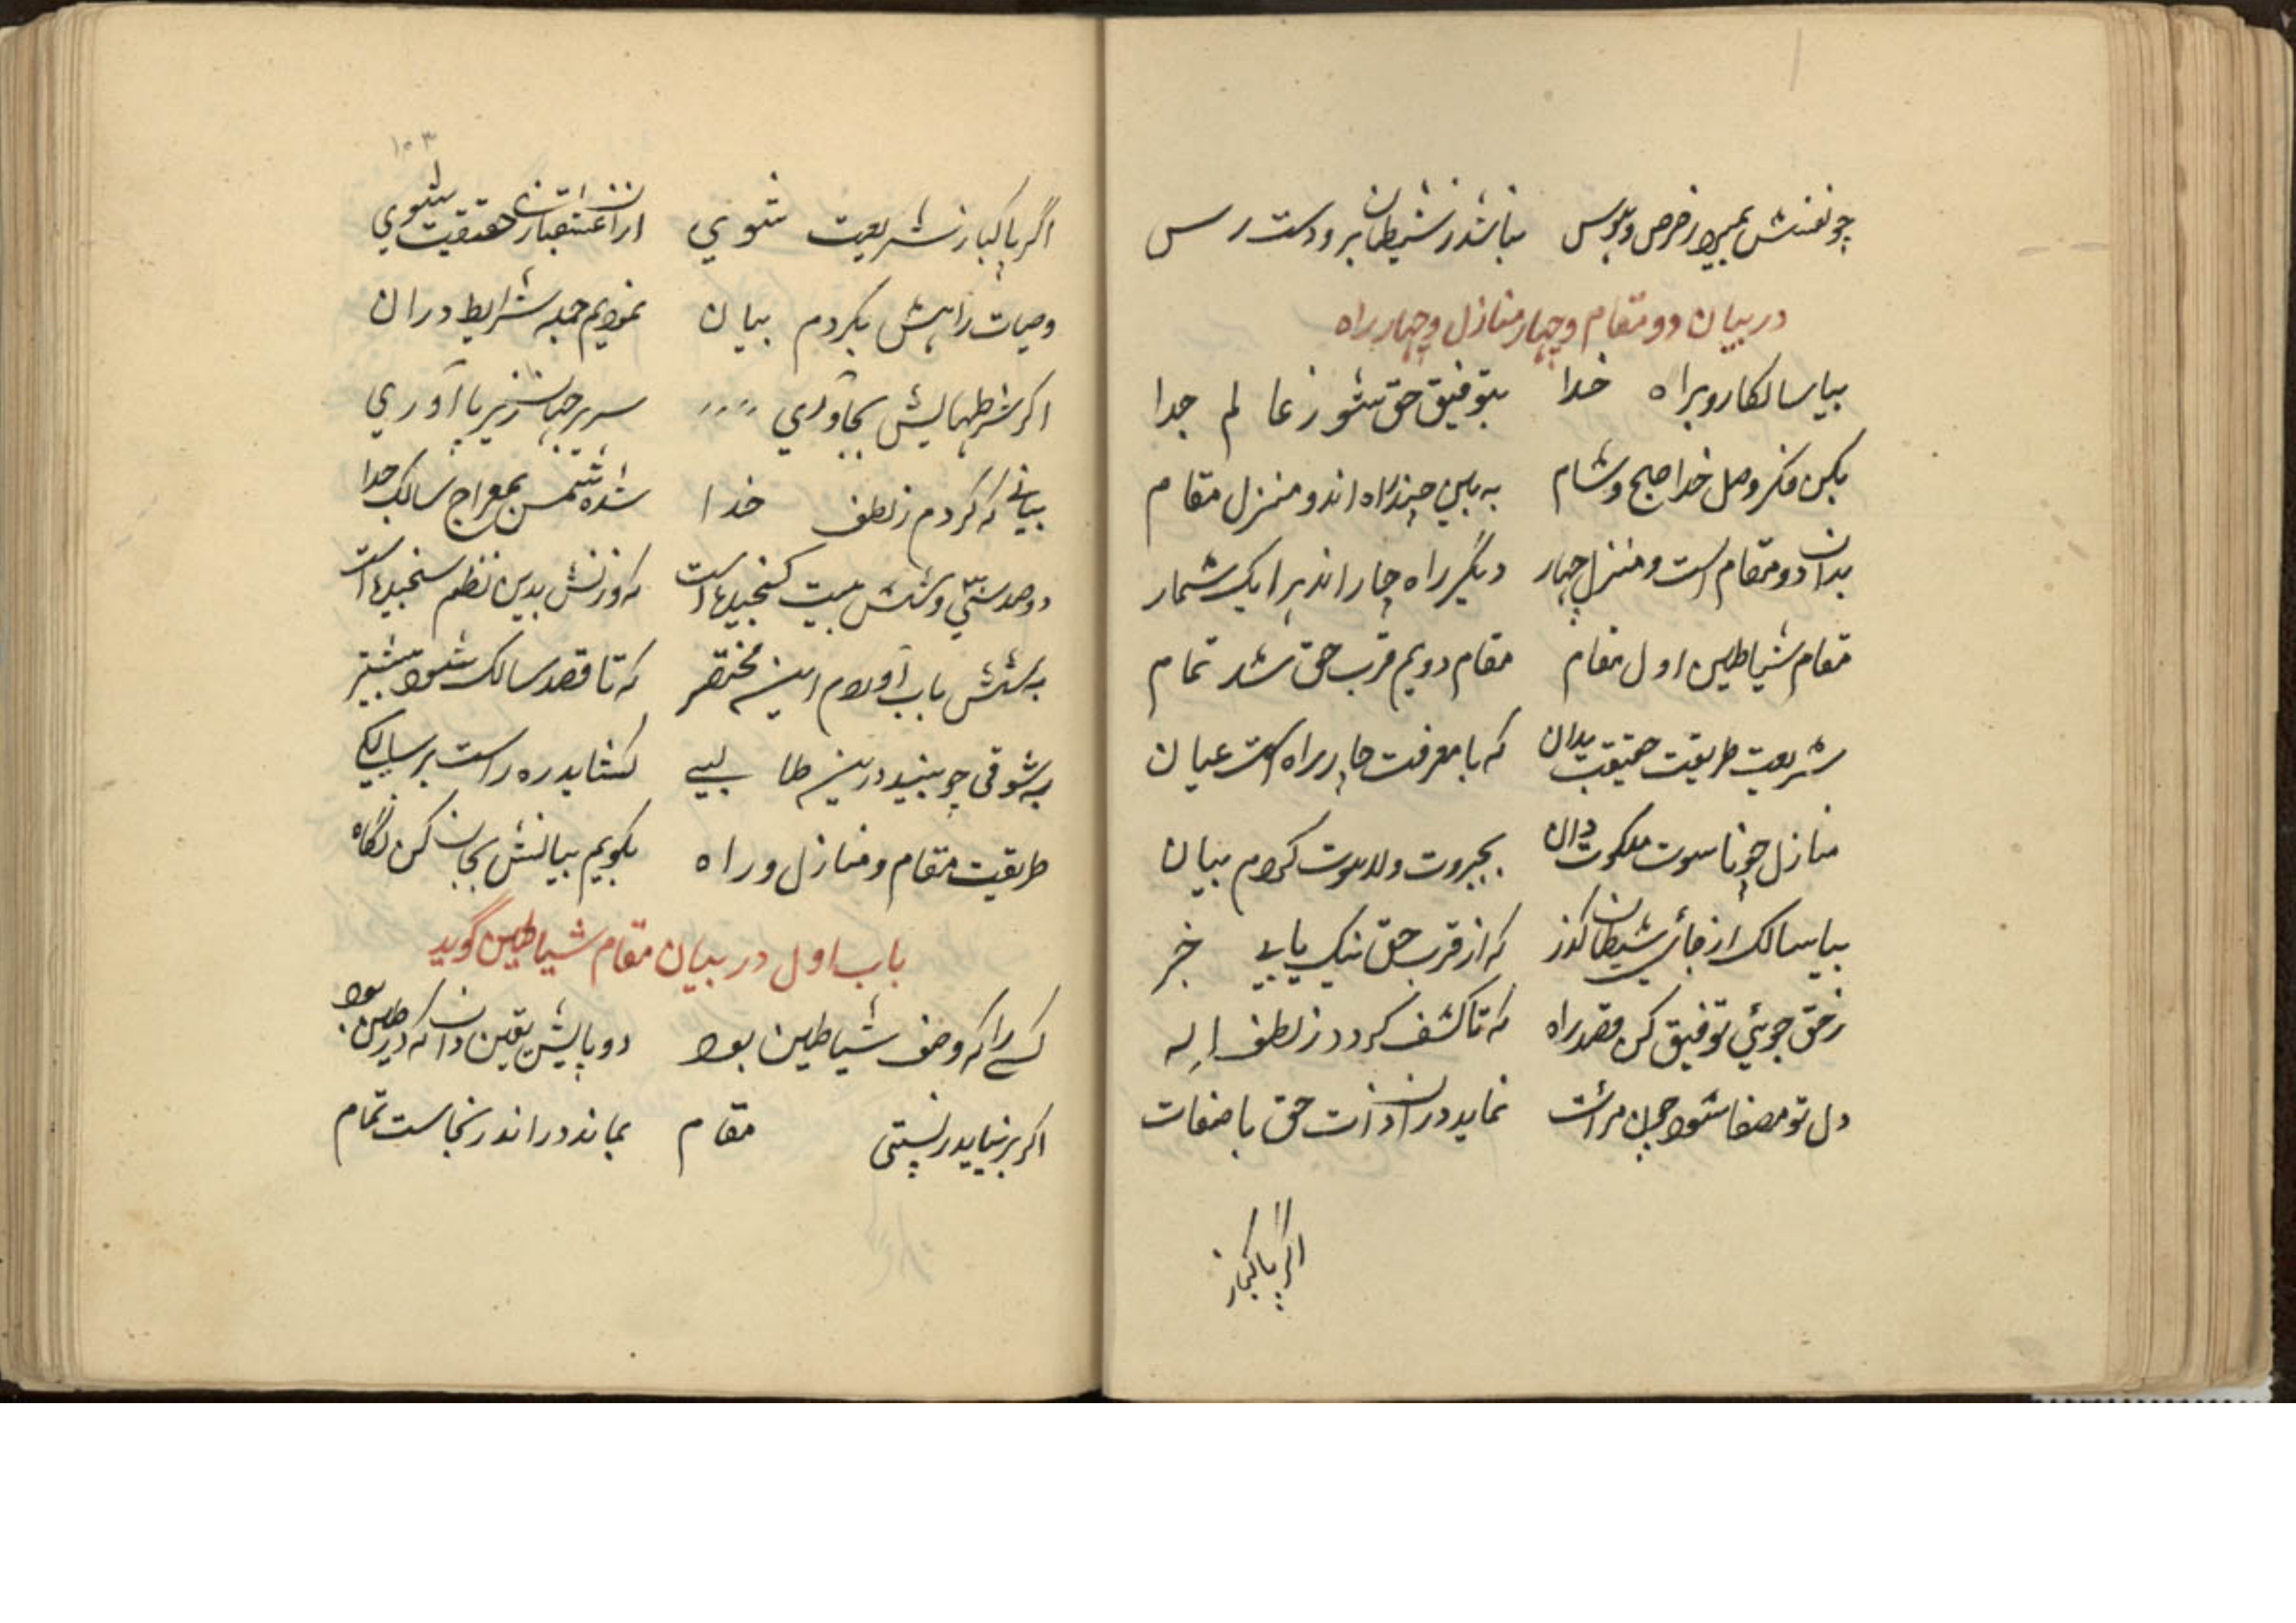 چو نفسش بمیرد ز حرص و هوس نباشد ز شیطان برو دست رس
در بیان دو مقام و چهار منازل و چهار راه
بیا سالکا رو براه خدا بتوفیق حق شو ز عالم جدا
بکن فکر وصل خدا صبح و شام به بین چند راه اند و منزل مقام
بدان دو مقام است و منزل چهار دیگر راه چار اند برا یک شمار
مقام شیاطین اول مقام مقام دویم قرب حق شد تمام
شریعت طریقت حقیقت بدان که با معرفت چار راه است عیان
منازل چو ناسوت ملکوت دان بجبروت و لاهوت کردم بیان
بیا سالک از جائ شیطان گذر که از قرب حق نیک یابی خبر
ز حق جوئی توفیق کن قصد راه که تا کشف گردد ز لطف اله
دل تو مصفا شود چون مرات نماید دران ذات حق با صفات
اگر پاکباز
۱۰۳
اگر پاکباز شریعت شوی ازان حقیقت شوی
وصیات راهش بکردم بیان نمودیم جمله شرایط دران
اگر شرطهایش بجا آوری سریر جهان زیر پا آوری
بیانی که کردم ز لطف خدا شده شمس بمعراج سالک خدا
دو صد سی و شش بیت گنجیده است که وزنش بدین نظم سنجیده است
به شش باب آوردم این مختصر که تا قصد سالک شود بیشتر
به شوقی چو بیند درین طالبی کشاید ره راست بر سالکی
طریقت مقام و منازل و راه بگویم بیانش بجان کن نگاه
باب اول در بیان مقام شیاطین گوید
کسی را که وصف شیاطین بود دو پایش یقین دان که در طین بود
اگر برنیاید ز پستی مقام بماند در اندر نجاست تمام